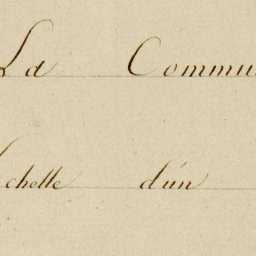 La Commu
chelle d'un